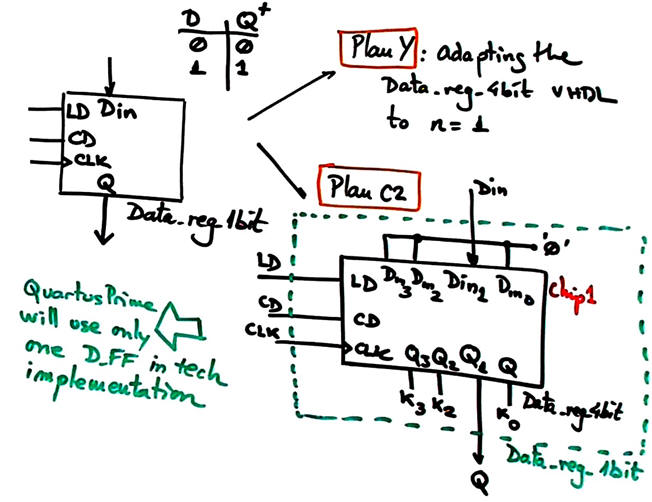 D Q+
0 0
1 1
Din
LD
CD
CLK
Q
Data_reg_1bit
Plan Y : adapting the
Data_reg_4bit VHDL
to n=1
Plan C2
Din
'0'
LD
CD
CLK
LD Din3 Din2 Din1 Din0
CD
CLK Q3 Q2 Q1 Q
Chip1
K3 K2 K0
Data_reg4bit
Data_reg_1bit
Q
Quartus Prime
will use only
one D_FF in tech
implementation